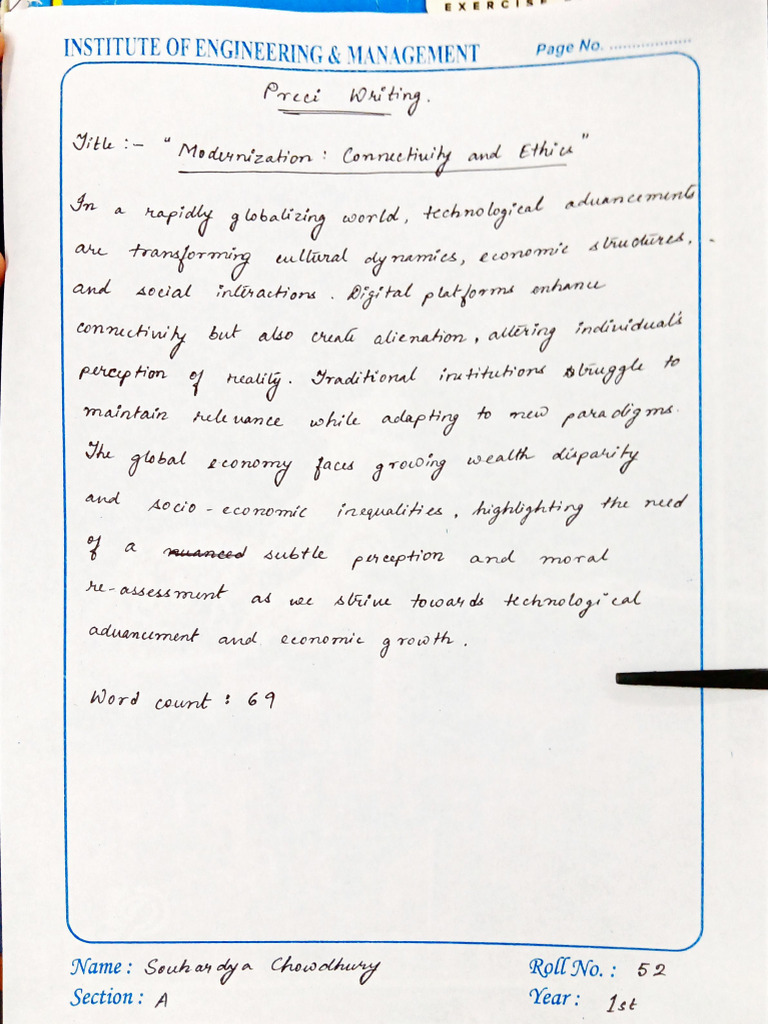 EXERCISE
INSTITUTE OF ENGINEERING & MANAGEMENT Page No. ..................
Preci Writing.
Title :- "Modernization : Connectivity and Ethics"
In a rapidly globalizing world, technological advancements
are transforming cultural dynamics, economic structures,
and social interactions. Digital platforms enhance
connectivity but also create alienation, altering individual's
perception of reality. Traditional institutions struggle to
maintain relevance while adapting to new paradigms.
The global economy faces growing wealth disparity
and socio-economic inequalities, highlighting the need
of a nuanced subtle perception and moral
re-assessment as we strive towards technological
advancement and economic growth.
Word count : 69
Name : Souhardya Chowdhury Roll No. : 52
Section : A Year : 1st